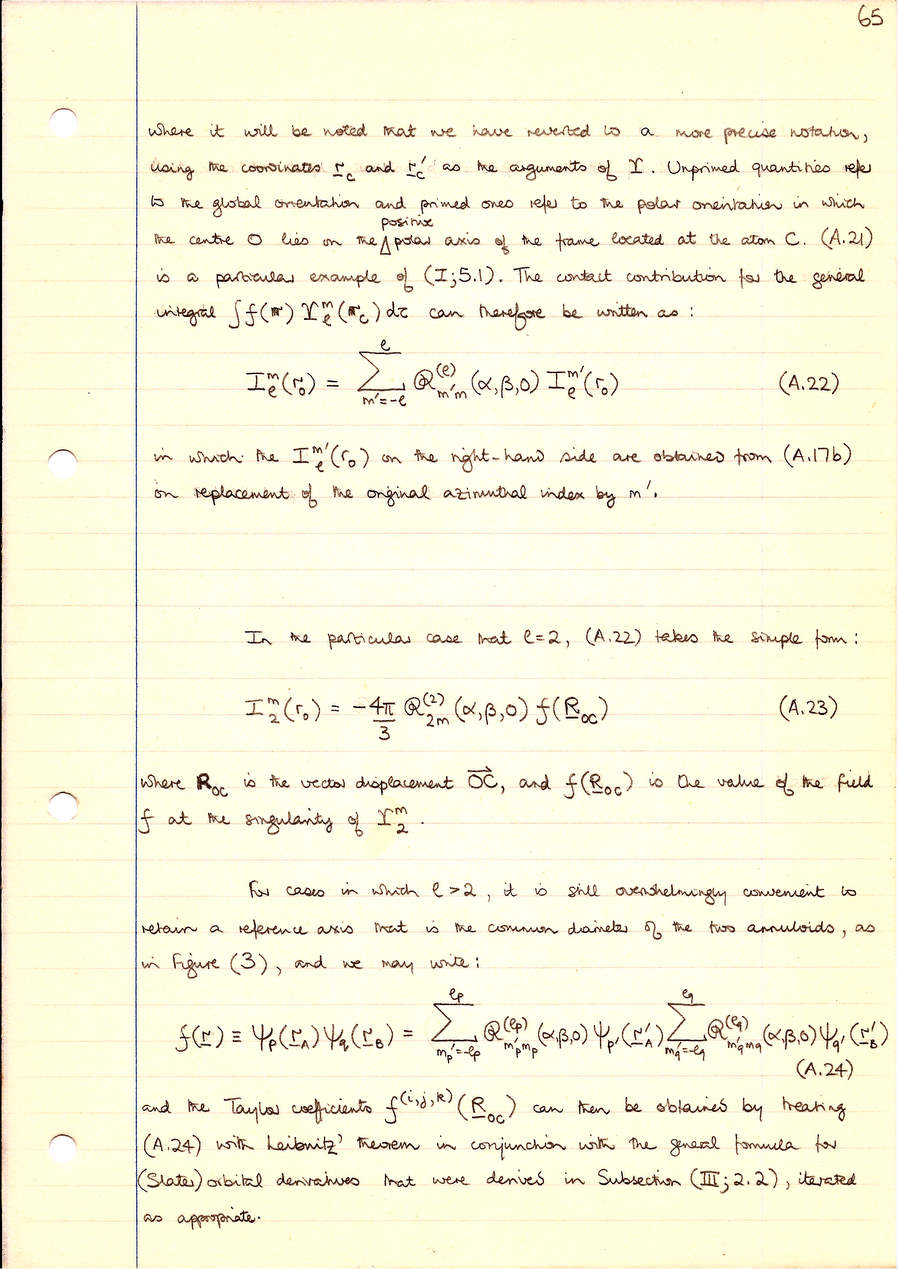 65
where it will be noted that we have reverted to a more precise notation,
using the coordinates r_c and r_c′ as the arguments of Υ. Unprimed quantities refer
to the global orientation and primed ones refer to the polar orientation in which
positive
the centre O lies on the ∆ polar axis of the frame located at the atom C. (A.21)
is a particular example of (I;5.1). The contact contribution for the general
integral ∫f(r) Υ_ℓ^m(r_c) dτ can therefore be written as:
I_ℓ^m(r_o) = ∑_{m′=-ℓ}^{ℓ} ℛ_{m′m}^{(ℓ)}(α,β,0) I_ℓ^{m′}(r_o) (A.22)
in which the I_ℓ^{m′}(r_o) on the right-hand side are obtained from (A.17b)
on replacement of the original azimuthal index by m′.
In the particular case that ℓ=2, (A.22) takes the simple form:
I_2^m(r_o) = -4π/3 ℛ_{2m}^{(2)}(α,β,0) f(R_OC) (A.23)
where R_OC is the vector displacement OC→, and f(R_OC) is the value of the field
f at the singularity of Υ_2^m.
For cases in which ℓ>2, it is still overwhelmingly convenient to
retain a reference axis that is the common diameter of the two annuloids, as
in Figure (3), and we may write:
f(r) ≡ Ψ_p(r_A)Ψ_q(r_B) = ∑_{m_p′=-ℓ_p}^{ℓ_p} ℛ_{m_p′m_p}^{(ℓ_p)}(α,β,0) Ψ_p′(r_A′) ∑_{m_q′=-ℓ_q}^{ℓ_q} ℛ_{m_q′m_q}^{(ℓ_q)}(α,β,0) Ψ_q′(r_B′)
(A.24)
and the Taylor coefficients f^{(i,j,k)}(R_OC) can then be obtained by treating
(A.24) with Leibnitz' theorem in conjunction with the general formula for
(Slater) orbital derivatives that were derived in Subsection (III;2.2), iterated
as appropriate.